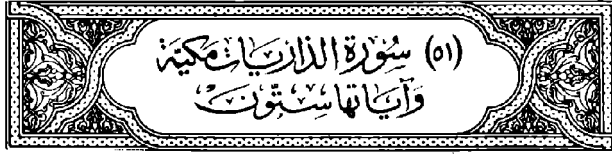 (٥١) سُورَة الذاريَات مكيَّة
وَآيَاتهَا سِتّونَ